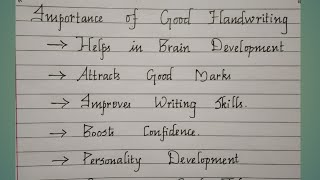 Importance of Good Handwriting
→ Helps in Brain Development
→ Attracts Good Marks
→ Improves Writing Skills.
→ Boosts Confidence.
→ Personality Development